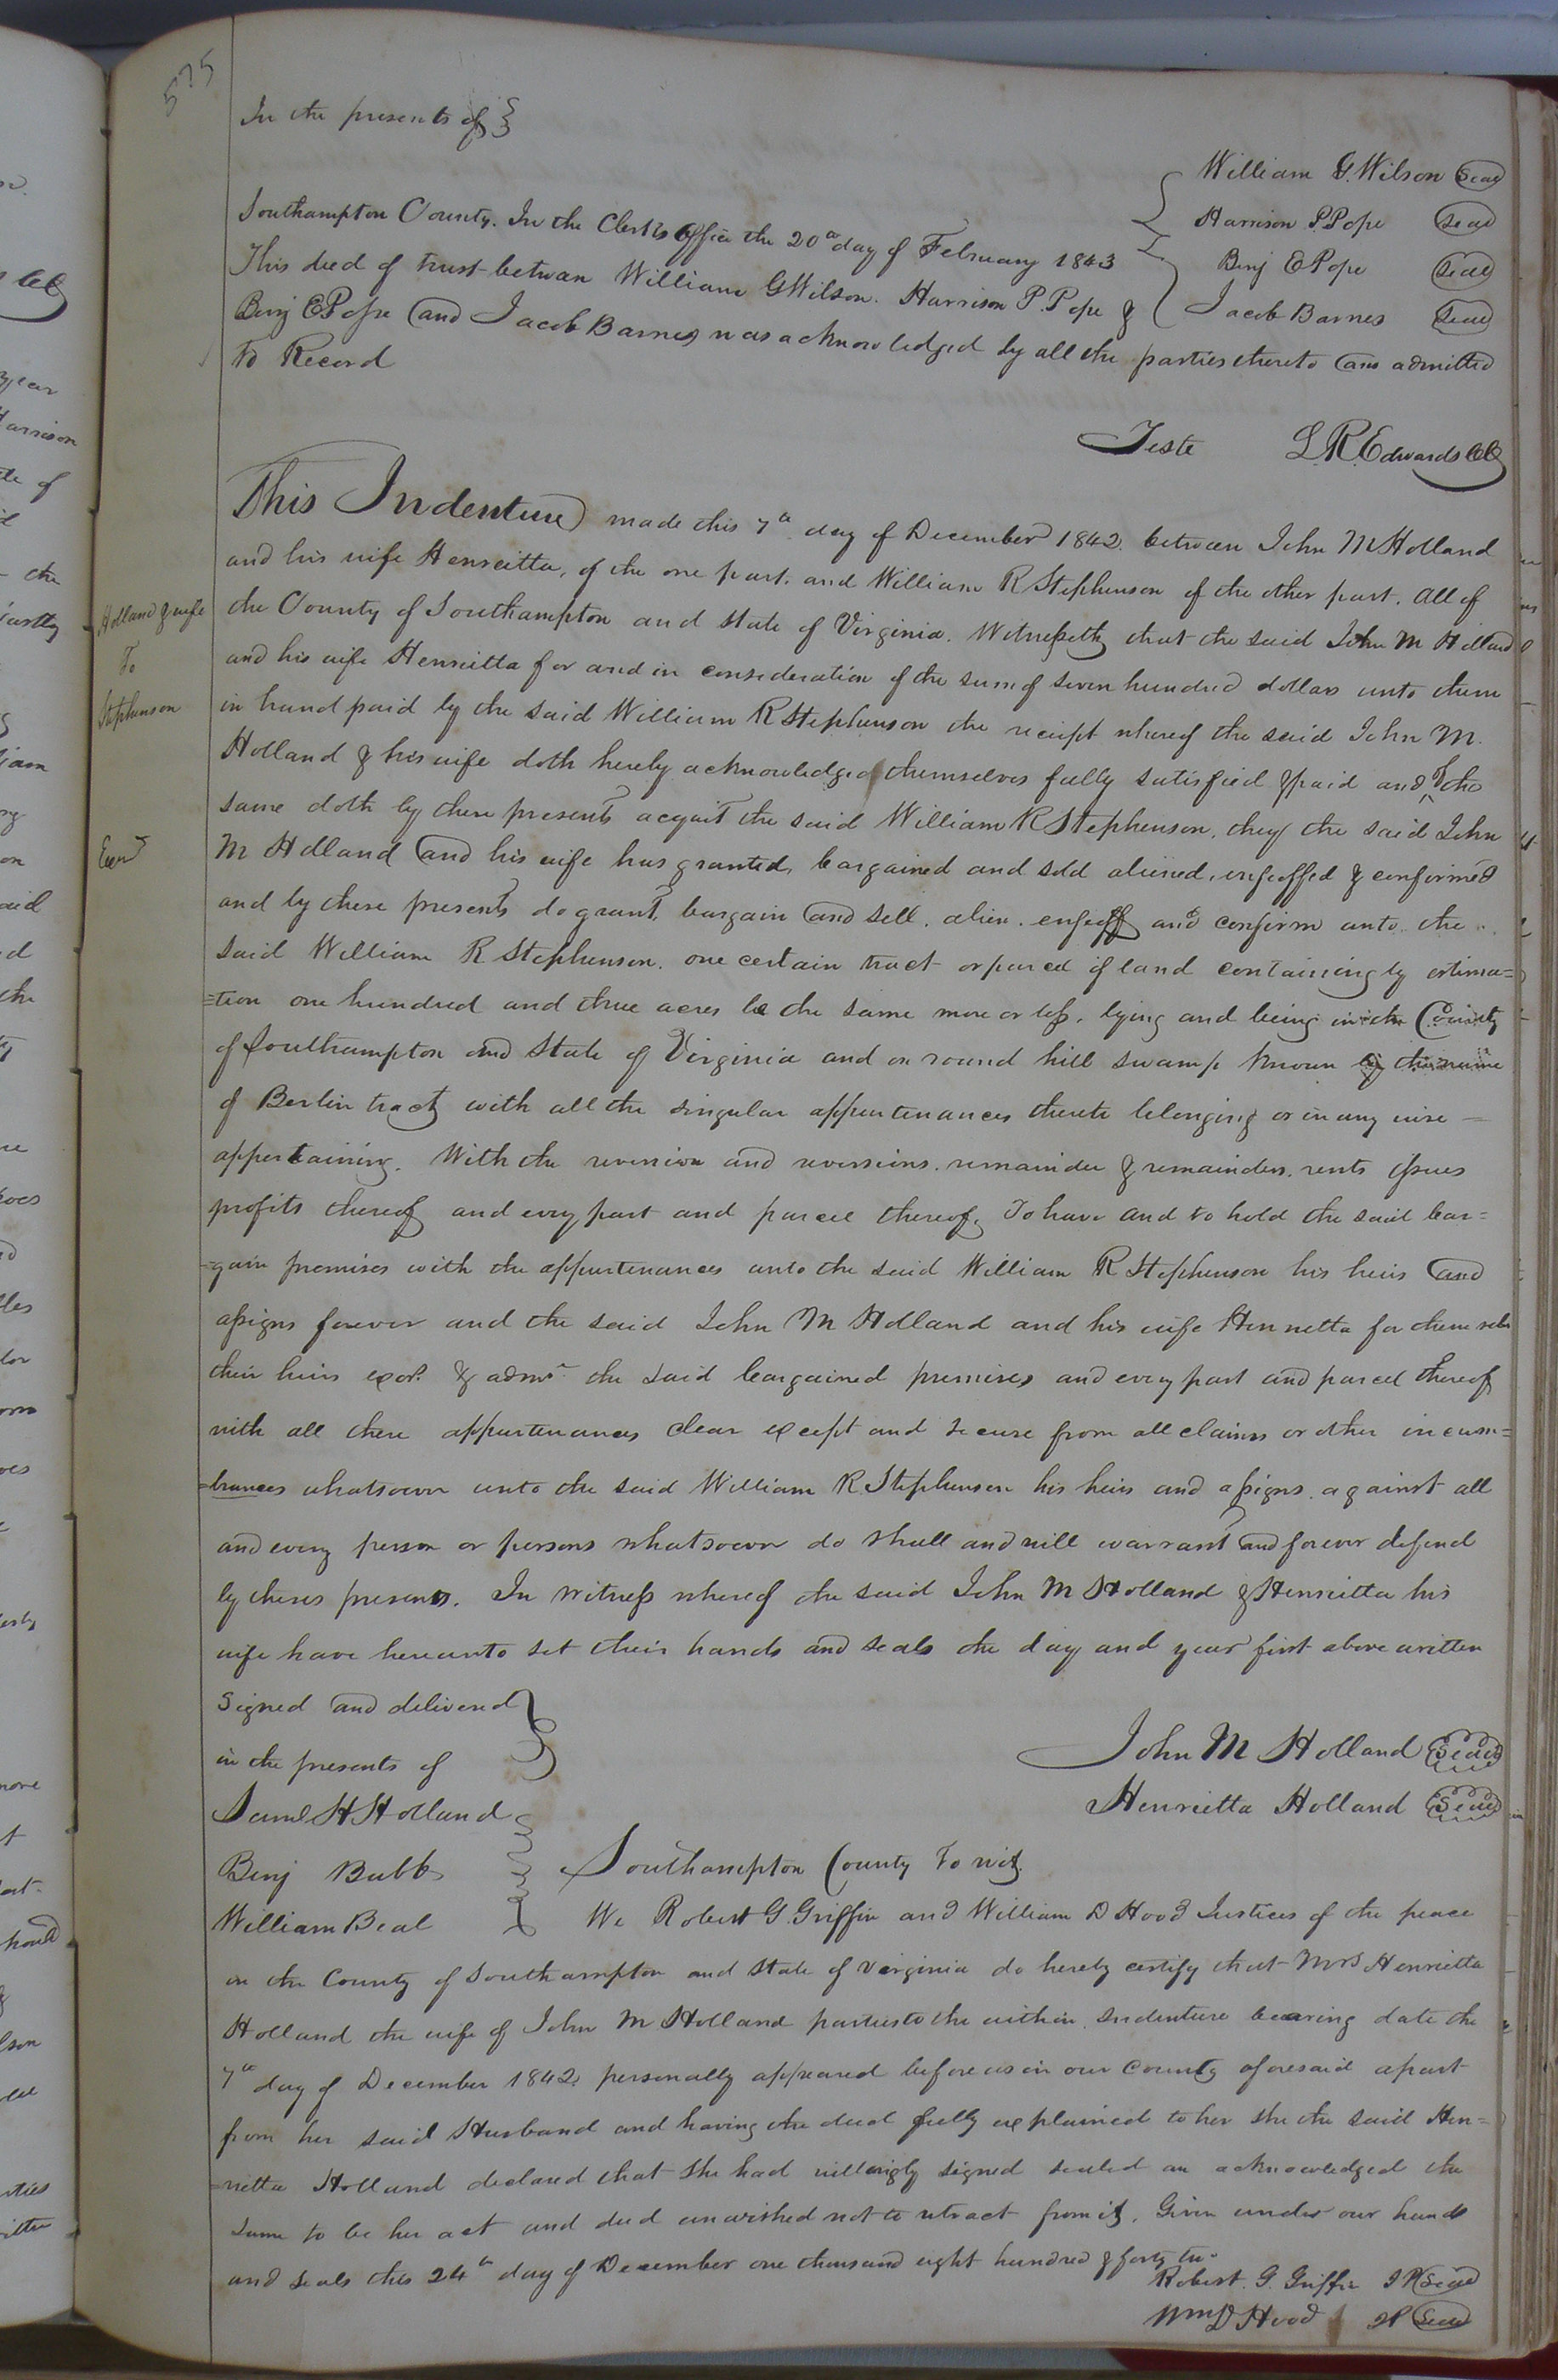 575
In the presents of
William G. Wilson Seal
Harrison P. Pope Seal
Benj E Pope Seal
Jacob Barnes Seal
Southampton County. In the Clerk's Office the 20th day of February 1843
This deed of trust between William G Wilson. Harrison P. Pope &
Benj E Pope and Jacob Barnes was acknowledged by all the parties thereto and admitted
To Record
Teste L. R. Edwards Clk
Holland & wife
To
Stephenson
Exd
This Indenture made this 7th day of December 1842. between John M Holland
and his wife Henrietta, of the one part. and William R Stephenson of the other part. All of
the County of Southampton and State of Virginia. Witnesseth that the said John M Holland
and his wife Henrietta for and in consideration of the sum of seven hundred dollars unto them
in hand paid by the said William R Stephenson the receipt whereof the said John M.
Holland & his wife doth hereby acknowledged themselves fully satisfied & paid and of the
same doth by these presents acquit the said William R Stephenson, they the said John
M Holland and his wife has granted, bargained and sold aliened, enfeoffed & confirmed
and by these presents do grant, bargain and sell. alien. enfeoff and confirm unto the
said William R Stephenson. one certain tract or parcel of land containing by estima=
=tion one hundred and three acres be the same more or less, lying and being in the County
of Southampton and State of Virginia and on round hill swamp known by the name
of Berlin tract with all the singular appurtenances thereto belonging or in any wise
appertaining. With the revision and reversions. remainder & remainders. rents issues
profits thereof and every part and parcel thereof. To have and to hold the said bar=
=gain premises with the appurtenances unto the said William R Stephenson his heirs and
assigns forever and the said John M Holland and his wife Henrietta for themselves
their heirs exors. & admrs the said bargained premises and every part and parcel thereof
with all there appurtenances clear except and secure from all claims or other incum=
=brances whatsoever unto the said William R. Stephenson his heirs and assigns against all
and every person or persons whatsoever do shall and will warrant and forever defend
by theses presents. In witness whereof the said John M Holland & Henrietta his
wife have hereunto set their hands and seals the day and year first above written
Signed and delivered
in the presents of
John M Holland Seal
Saml H Holland
Henrietta Holland Seal
Benj Bubb
Southampton County To wit.
William Beal
We Robert G. Griffin and William D Hood Justices of the peace
in the County of Southampton and State of Virginia do hereby certify that Mrs Henrietta
Holland the wife of John M Holland parties to the within Indenture bearing date the
7th day of December 1842. personally appeared before us in our County aforesaid apart
from her said Husband and having the deed fully explained to her she the said Hen=
=rietta Holland declared that she had willingly signed sealed an acknowledged the
same to be her act and deed an wished not to retract from it. Given under our hands
and seals this 24th day of December one thousand eight hundred & forty two
Robert. G. Griffin J P Seal
Wm D Hood J P Seal